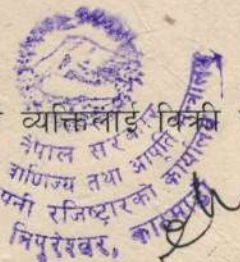 व्यक्तिलाई विक्री
नेपाल सरकार
वाणिज्य तथा आपूर्ति मन्त्रालय
कम्पनी रजिष्ट्रारको कार्यालय
त्रिपुरेश्वर, काठमाडौं